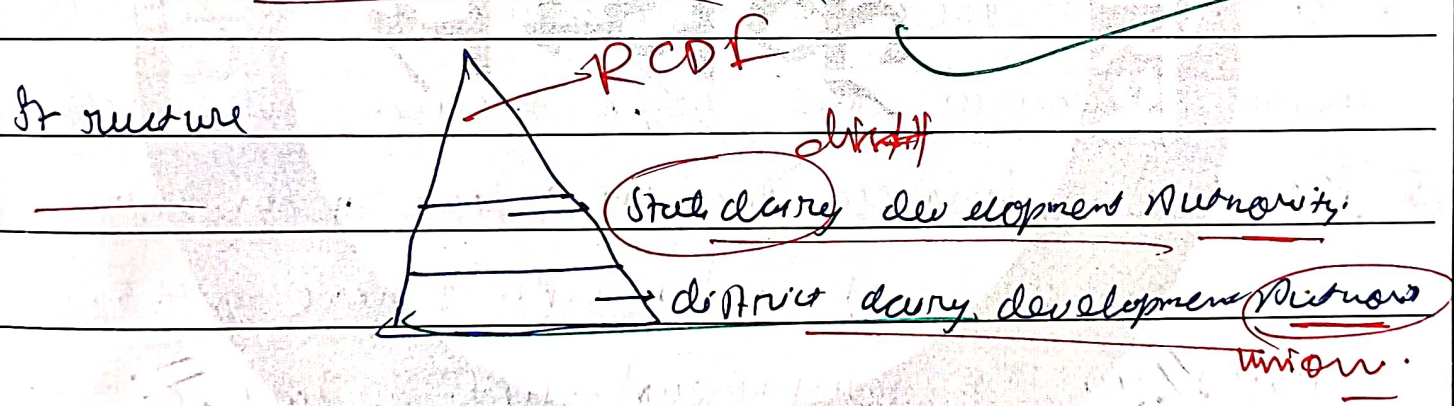 RCDF
Structure
State dairy development Authority.
district dairy development Authority
union.